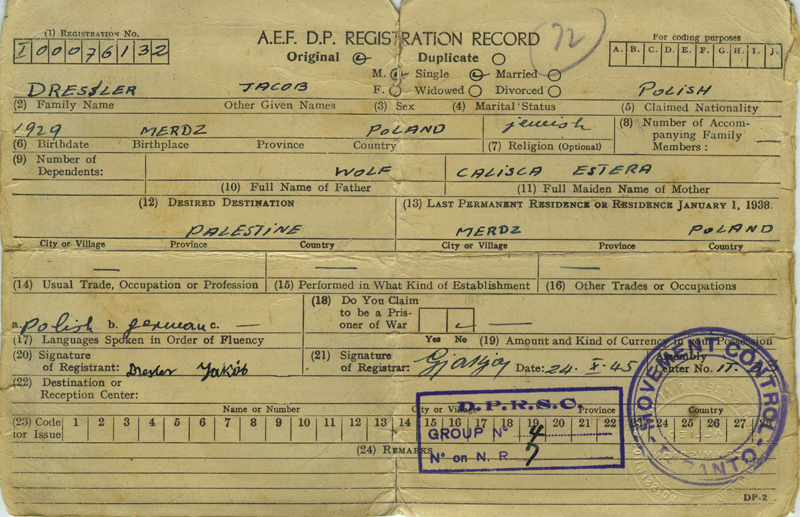 (1) REGISTRATION NO.
I 00076132
A.E.F. D.P. REGISTRATION RECORD
(72)
For coding purposes
A. B. C. D. E. F. G. H. I. J.
Original Duplicate
M. Single Married
F. Widowed Divorced
DRESSLER JACOB POLISH
(2) Family Name Other Given Names (3) Sex (4) Marital Status (5) Claimed Nationality
1929 MERDZ POLAND jewish —
(6) Birthdate Birthplace Province Country (7) Religion (Optional) (8) Number of Accompanying Family Members:
(9) Number of Dependents: WOLF CALISCA ESTERA
(10) Full Name of Father (11) Full Maiden Name of Mother
(12) DESIRED DESTINATION (13) LAST PERMANENT RESIDENCE OR RESIDENCE JANUARY 1, 1938.
PALESTINE MERDZ POLAND
City or Village Province Country City or Village Province Country
— — —
(14) Usual Trade, Occupation or Profession (15) Performed in What Kind of Establishment (16) Other Trades or Occupations
a. Polish b. german c. —
(18) Do You Claim to be a Prisoner of War
Yes No
—
(17) Languages Spoken in Order of Fluency (19) Amount and Kind of Currency in your Possession
(20) Signature of Registrant: Dresler Jakób (21) Signature of Registrar: Date: 24. X. 45 Assembly Center No. 17.
(22) Destination or Reception Center:
Name or Number City or Village Province Country
(23) Code for Issue 1 2 3 4 5 6 7 8 9 10 11 12 13 14 15 16 17 18 19 20 21 22 23 24 25 26 27 28
(24) REMARKS
D.P.R.S.C.
GROUP Nº 4
Nº on N. R 7
MOVEMENT CONTROL
DP-2